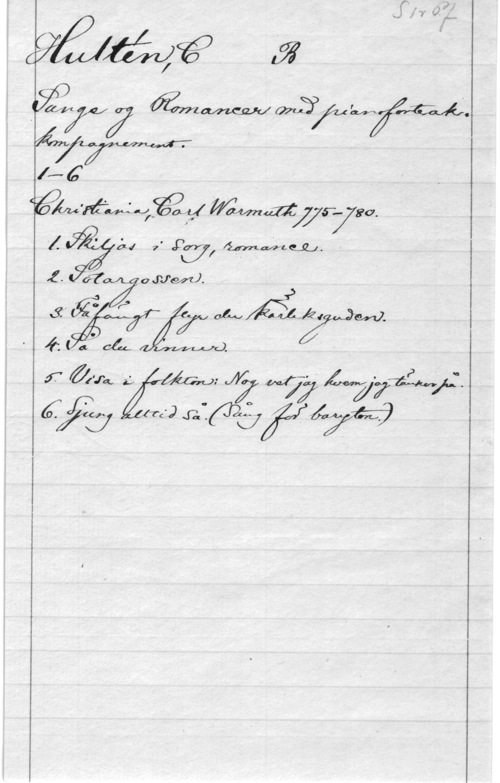 Hultén, C B
Sange og Romancer med pianoforteak-
kompagnement.
1-6
Christiania, Carl Warmuth 775-780.
1. Skiljas i sorg, romance.
2. Sotargossen.
3. Fåfängt flyr du kärleksguden.
4. Så du vinner.
5. Visa i folkton: Nog vet jag hvem jag tänker på.
6. Sjung alltid så. (Sång för baryton.)